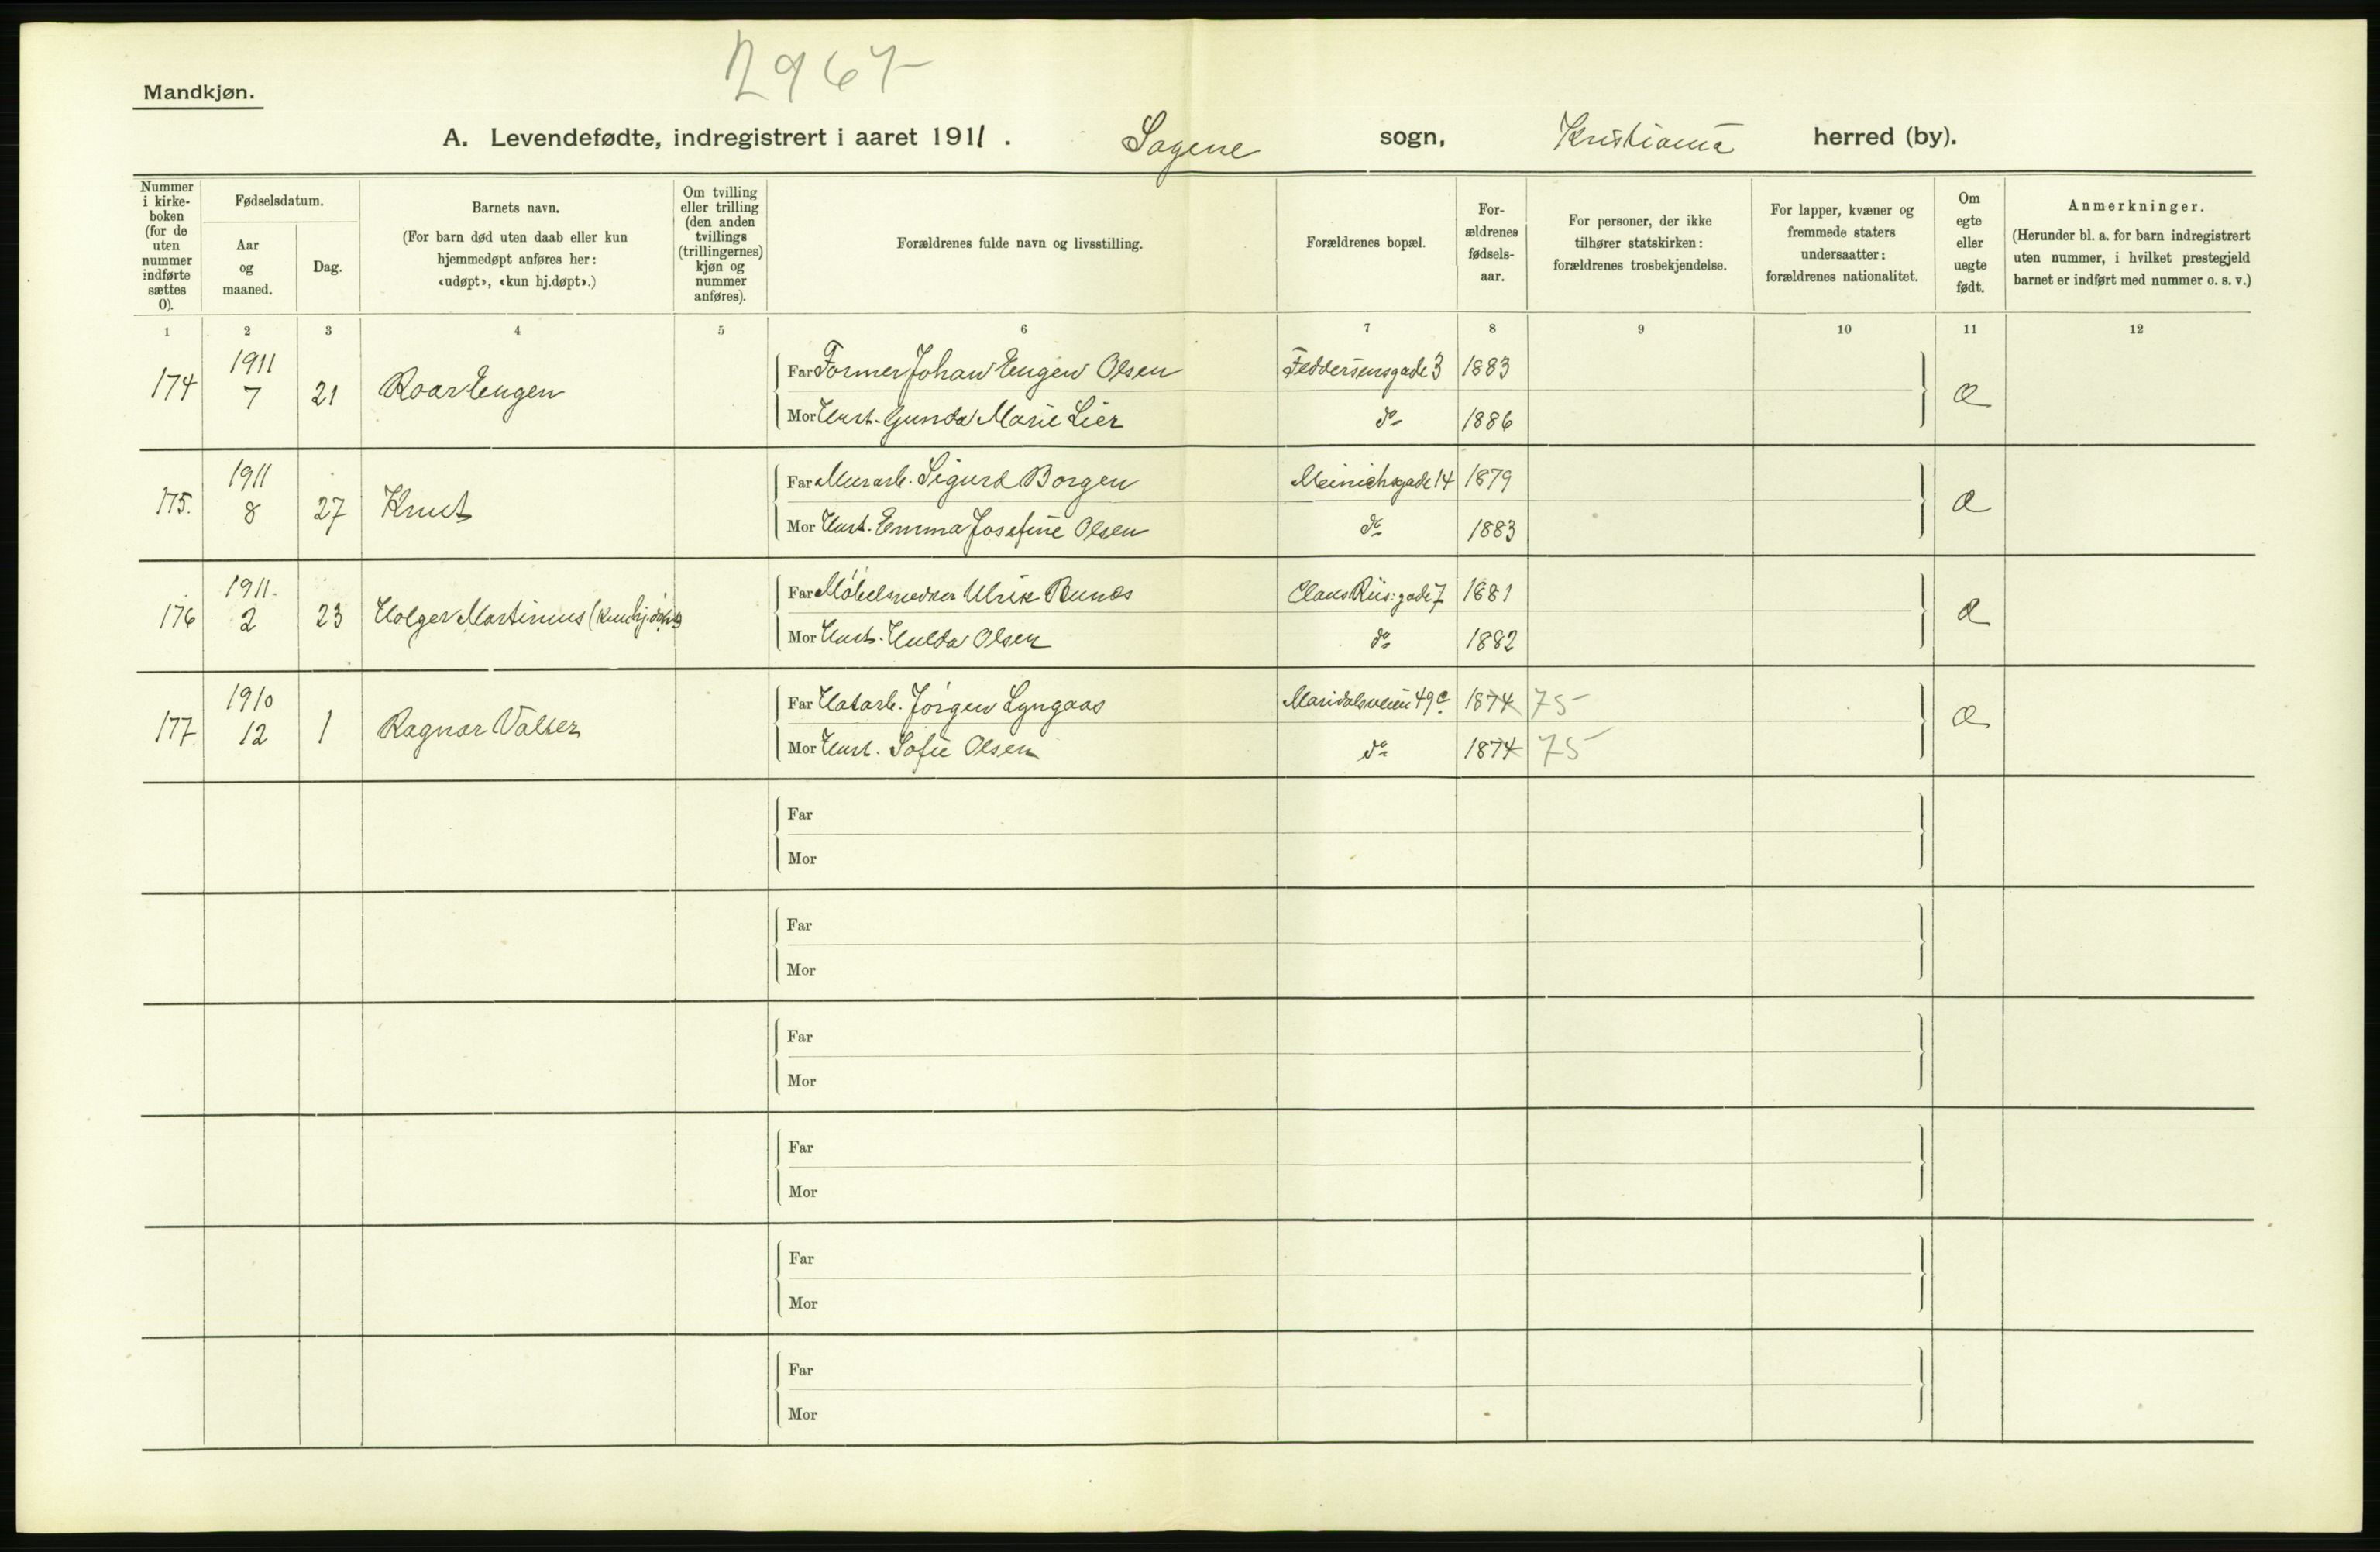 2967
Mandkjøn.
A. Levendefødte, indregistrert i aaret 1911. Sagene sogn, Kristiania herred (by).
Nummer i kirke-boken (for de uten nummer indførte sættes 0).
Fødselsdatum.
Aar og maaned.
Dag.
Barnets navn.
(For barn død uten daab eller kun hjemmedøpt anføres her: «udøpt», «kun hj.døpt».)
Om tvilling eller trilling (den anden tvillings (trillingernes) kjøn og nummer anføres).
Forældrenes fulde navn og livsstilling.
Forældrenes bopæl.
For-ældrenes fødsels-aar.
For personer, der ikke tilhører statskirken: forældrenes trosbekjendelse.
For lapper, kvæner og fremmede staters undersaatter: forældrenes nationalitet.
Om egte eller uegte født.
Anmerkninger.
(Herunder bl. a. for barn indregistrert uten nummer, i hvilket prestegjeld barnet er indført med nummer o. s. v.)
1 2 3 4 5 6 7 8 9 10 11 12
174 1911 7 21 Roar Eugen
Far Former Johan Eugen Olsen Feddersensgade 3 1883
Mor Hust. Gunda Marie Lier do 1886
175. 1911 8 27 Knut
Far Murarb. Sigurd Borgen Meinichsgade 14 1879
Mor Hust. Emma Josefine Olsen do 1883
176 1911. 2 23 Holger Martinius (kun hj.døpt)
Far Møbelsnedker Ulrik Bunæs Claus Riis: gade 7 1881
Mor Hust. Hulda Olsen do 1882
177 1910 12 1 Ragnar Valter
Far Jørgen Lyngaas Maridalsveien 49 c 1874 75
Mor Hust. Sofie Olsen do 1874 75
Far
Mor
Far
Mor
Far
Mor
Far
Mor
Far
Mor
Far
Mor